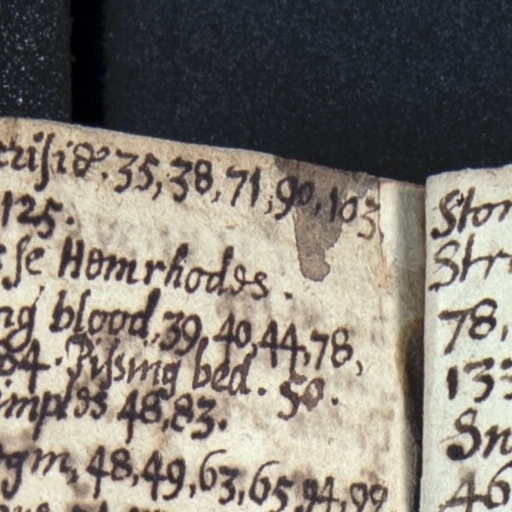 35, 38, 71, 90, 103
125.
se Hemrhodes.
ng blood, 39, 40, 44, 78,
64. Pissing bed. 50.
imples 48, 83.
gm, 48, 49, 63, 65, 94, 99
Ston
Stra
78,
133
Sn
46